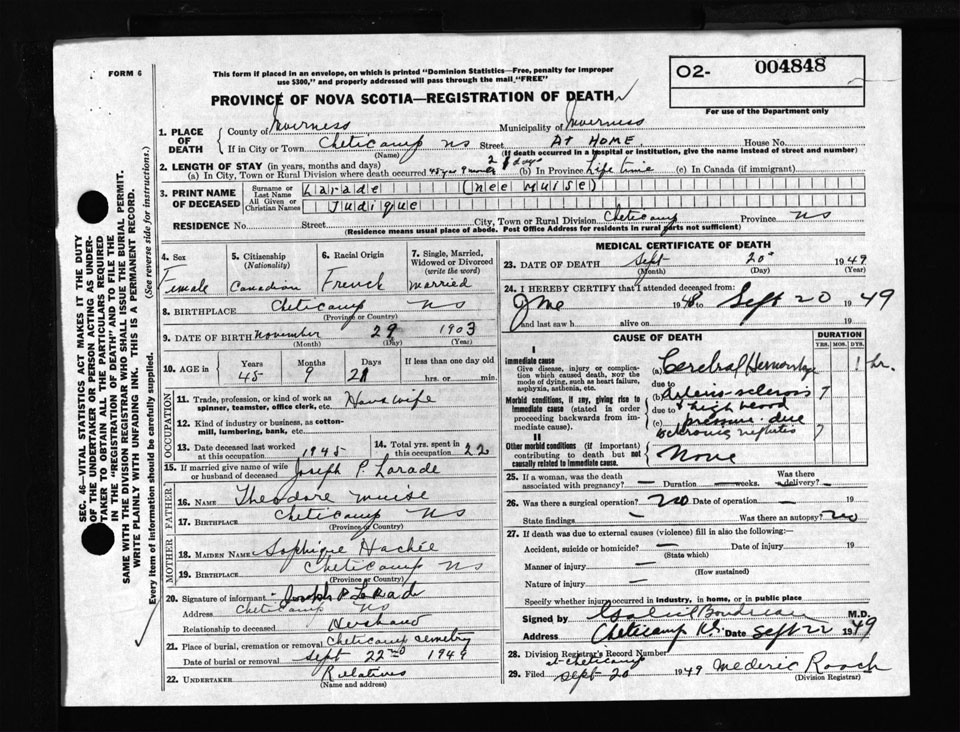 FORM 6
This form if placed in an envelope, on which is printed "Dominion Statistics—Free, penalty for improper
use $300," and properly addressed will pass through the mail "FREE"
O2- 004848
For use of the Department only
PROVINCE OF NOVA SCOTIA—REGISTRATION OF DEATH
1. PLACE OF DEATH
County of Inverness Municipality of Inverness
If in City or Town Cheticamp NS Street AT HOME House No.
(Name) (If death occurred in a hospital or institution, give the name instead of street and number)
2. LENGTH OF STAY (in years, months and days)
(a) In City, Town or Rural Division where death occurred 45 yrs 9 months 21 days (b) In Province Life time (c) In Canada (if immigrant)
3. PRINT NAME OF DECEASED
Surname or Last Name Larade (nee Muise)
All Given or Christian Names Judique
RESIDENCE No. Street City, Town or Rural Division Cheticamp Province NS
(Residence means usual place of abode. Post Office Address for residents in rural parts not sufficient)
4. Sex Female
5. Citizenship (Nationality) Canadian
6. Racial Origin French
7. Single, Married, Widowed or Divorced (write the word) married
8. BIRTHPLACE Cheticamp NS
(Province or Country)
9. DATE OF BIRTH November 29 1903
(Month) (Day) (Year)
10. AGE in Years 45 Months 9 Days 21 If less than one day old hrs. or min.
OCCUPATION
11. Trade, profession, or kind of work as spinner, teamster, office clerk, etc. Housewife
12. Kind of industry or business, as cotton-mill, lumbering, bank, etc.
13. Date deceased last worked at this occupation 1945
14. Total yrs. spent in this occupation 22
15. If married give name of wife or husband of deceased Joseph P. Larade
FATHER
16. NAME Theodore Muise
17. BIRTHPLACE Cheticamp NS
(Province or Country)
MOTHER
18. MAIDEN NAME Sophique Hachée
19. BIRTHPLACE Cheticamp NS
(Province or Country)
20. Signature of informant Joseph P Larade
Address Cheticamp NS
Relationship to deceased Husband
21. Place of burial, cremation or removal Cheticamp Cemetry
Date of burial or removal Sept 22nd 1949
22. UNDERTAKER Relatives
(Name and address)
MEDICAL CERTIFICATE OF DEATH
23. DATE OF DEATH Sept 20 1949
(Month) (Day) (Year)
24. I HEREBY CERTIFY that I attended deceased from:
1948 to Sept 20 1949
and last saw h alive on 19
CAUSE OF DEATH
DURATION
YRS. MOS. DYS.
I
Immediate cause
Give disease, injury or complication which caused death, nor the mode of dying, such as heart failure, asphyxia, asthenia, etc.
(a) Cerebral Hemorrhage 1 hr.
due to
Morbid conditions, if any, giving rise to immediate cause (stated in order proceeding backwards from immediate cause).
(b) Arterio-sclerosis ?
due to + high blood
(c) pressure due
to chronic nephritis ?
II
Other morbid conditions (if important) contributing to death but not causally related to immediate cause.
None
25. If a woman, was the death associated with pregnancy? — Duration — weeks. Was there delivery? —
26. Was there a surgical operation? no Date of operation — 19
State findings — Was there an autopsy? no
27. If death was due to external causes (violence) fill in also the following:
Accident, suicide or homicide? — Date of injury 19
(State which)
Manner of injury —
(How sustained)
Nature of injury —
Specify whether injury occurred in industry, in home, or in public place
Signed by Boudreau M.D.
Address Cheticamp N.S. Date Sept 22 1949
28. Division Registrar's Record Number
29. Filed at Cheticamp Sept 20 1949 Mederic Roach
(Division Registrar)
SEC. 46—VITAL STATISTICS ACT MAKES IT THE DUTY
OF THE UNDERTAKER OR PERSON ACTING AS UNDER-
TAKER TO OBTAIN ALL THE PARTICULARS REQUIRED
IN THE "REGISTRATION OF DEATH" AND TO FILE THE
SAME WITH THE DIVISION REGISTRAR WHO SHALL ISSUE THE BURIAL PERMIT.
WRITE PLAINLY WITH UNFADING INK. THIS IS A PERMANENT RECORD.
Every item of information should be carefully supplied. (See reverse side for instructions.)